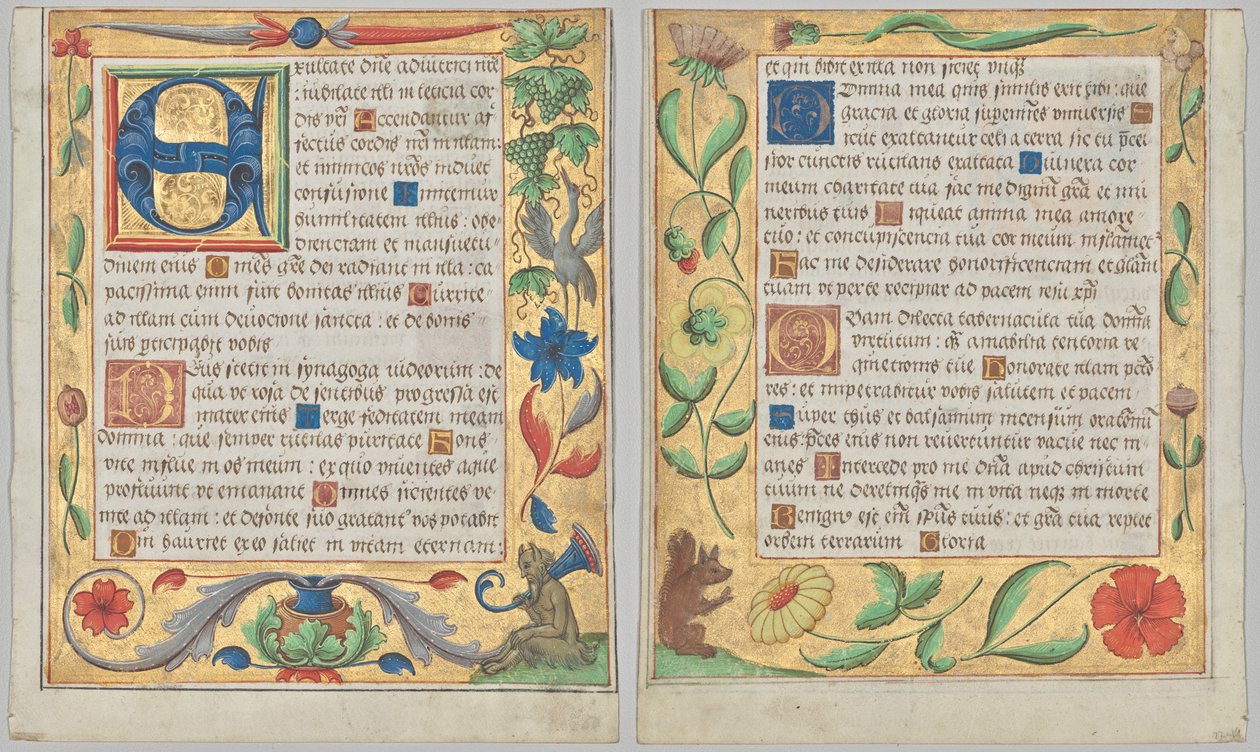 Exultate dñe adiutrici nrē
: iubilate illi in leticia cor
dis vrī Accendantur af
fectus cordis nrī in illam:
et inimicos nrōs induet
confusione Imitemur
humilitatem illius : obe
dienciam et mansuetu
dinem eius Omēs grē dei radiant in illa : ca
pacissima enim fuit bonitas illius Currite
ad illam cum devocione sancta : et de bonis
suis pticipabit vobis
Deus stetit in synagoga iudeorum : de
qua vt rosa de sentibus progressa est
mater eius Terge feditatem meam
domina : que semper rutilas puritate Fons
vite influe in os meum : ex quo viventes aque
profluunt vt emanant Omnes sicientes ve
nite ad illam : et de fonte suo gratant vos potabit
Qui hauriet ex eo saliet in vitam eternam :
et qui bibit ex illa non sciet
Domina mea quis similis erit tibi : que
gracia et gloria supermes vniversis
Sicut exaltantur celi a terra sic tu
cunctis rutilans exaltata Vulnera cor
meum charitate tua fac me dignū grā et mu
neribus tuis Liqueat anima mea amore
tuo : et concupiscencia tua cor meum inflamet
Fac me desiderare honorificenciam et gloriā
tuam vt per te recipiar ad pacem iesu xpi
Quam dilecta tabernacula tua domina
virtutum : amabilia tentoria re
quietionis tue Honorate illam pctō
res : et impetrabitur vobis salutem et pacem
Super thus et balsamum incensum
eius : pces eius non revertuntur vacue nec in
anes Intercede pro me dnā apud christum
tuum ne derelinqs me in vita neq in morte
Benignus est eim spūs tuus : et grā tua replet
orbem terrarum Gloria